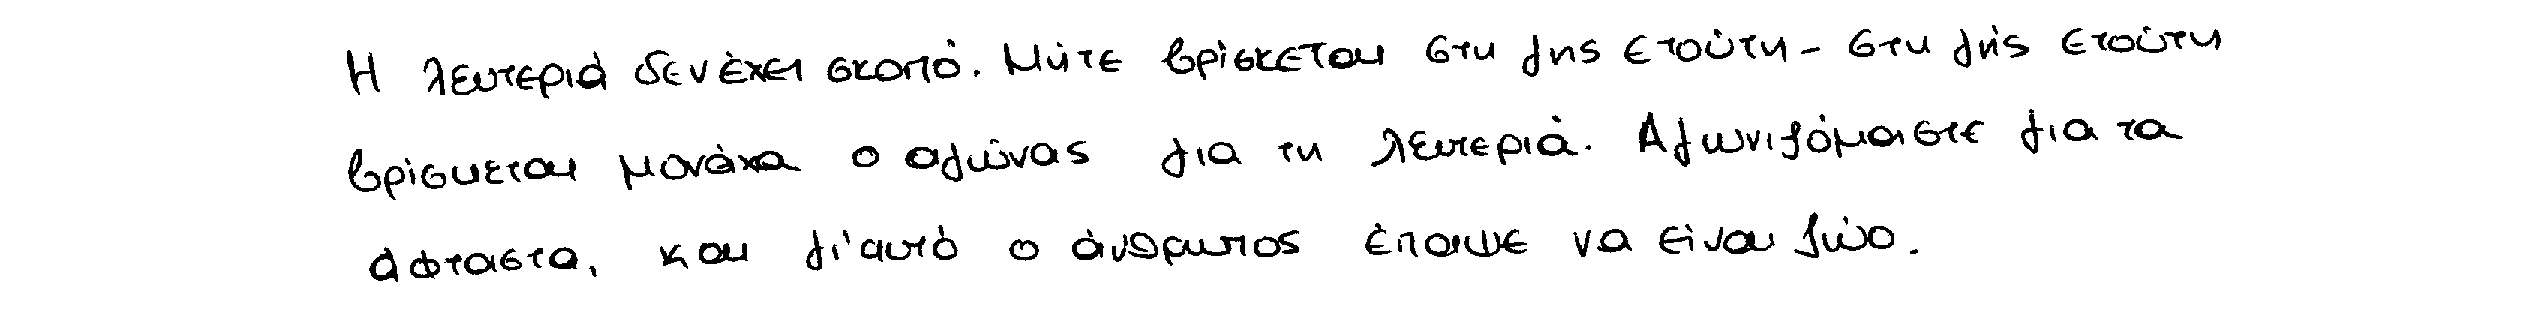 Η λευτεριά δεν έχει σκοπό. Μήτε βρίσκεται στη γης ετούτη - στη γής ετούτη
βρίσκεται μονάχα ο αγώνας για τη λευτεριά. Αγωνιζόμαιστε για τα
άφταστα, και γι'αυτό ο άνθρωπος έπαψε να είναι ζώο.